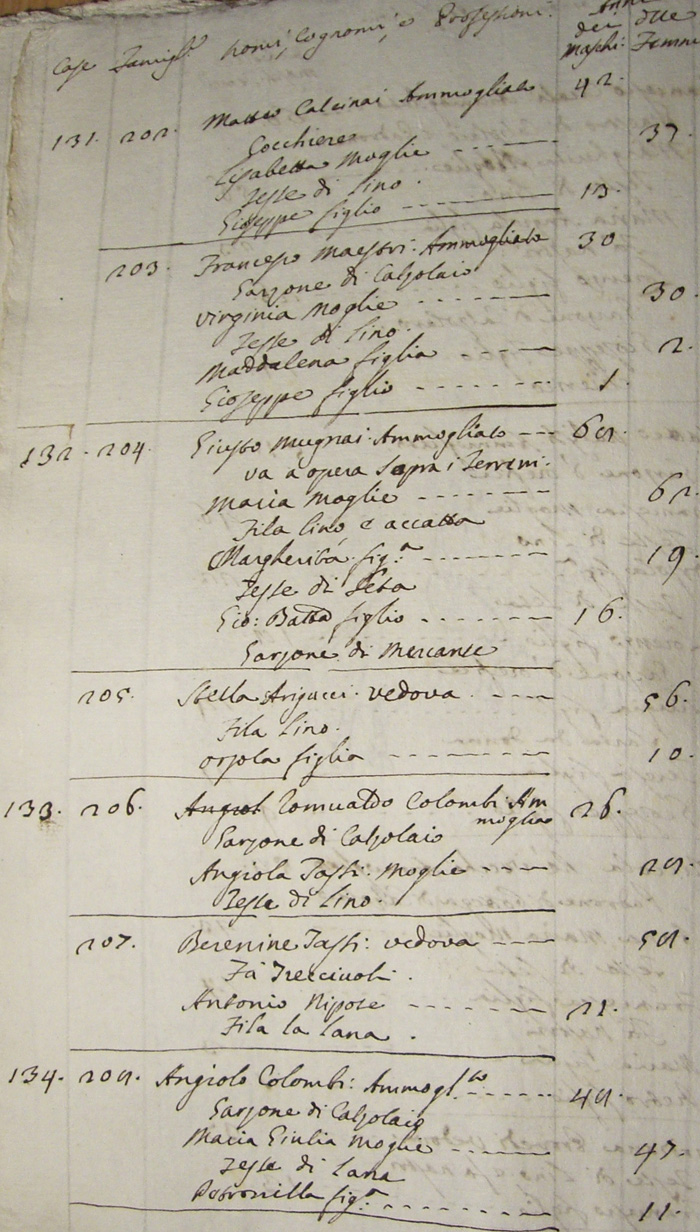 Case Famigl.e Nomi, Cognomi, e Professioni. Anni
dei Maschi: delle Femmi
131. 202. Matteo Calcinai Ammogliato 42.
Cocchiere
Elisabetta Moglie 37.
Tesse di Lino.
Gioseppe figlio 13.
203. Francesco Maestri: Ammogliato 30
Garzone di Calzolaio
Virginia Moglie 30.
Tesse di Lino.
Maddalena figlia 2.
Gioseppe figlio 1.
132. 204. Giusto Mugnai. Ammogliato
va a opera Sopra i Terreni.
Maria Moglie 62.
Fila lino e accatta
Margherita fig.a 19.
Tesse di Seta
Gio: Batta figlio 16.
Garzone di Mercante
205. Stella Arigucci. vedova 56.
Fila Lino.
Orsola figlia 10.
133. 206. Angiol Romualdo Colombi. Am
mogliao 26.
Garzone di Calzolaio
Angiola Tassi. Moglie
Tesse di Lino.
207. Berenine Tassi: vedova
Fà Trecciuoli.
Antonio Nipote 21.
Fila la Lana.
134. Angiolo Colombi: Ammogl.to
Garzone di Calzolaio
Maria Giulia Moglie 47.
Tesse di Lana
Petronilla fig.a 11.